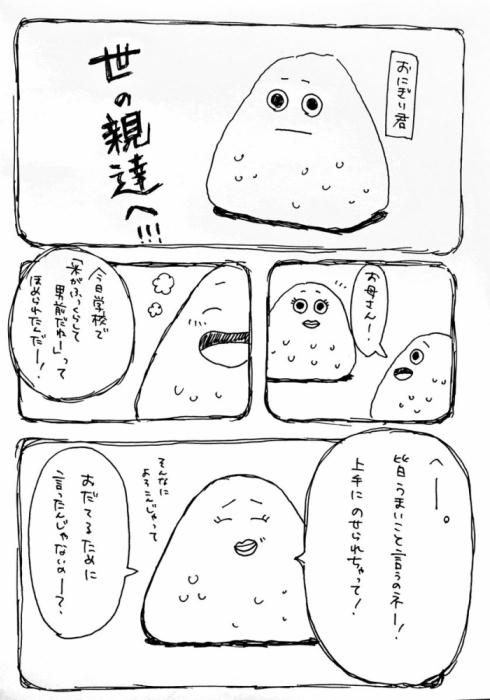 おにぎり君
世の親達へ!!!
お母さんー!
今日学校で
「米がふっくらして
男前だねー」って
ほめられたんだー!
へー。
皆うまいこと言うのネー!
上手にのせられちゃって!
そんなに
よろこんじゃって
おだてるために
言ったんじゃないのー?